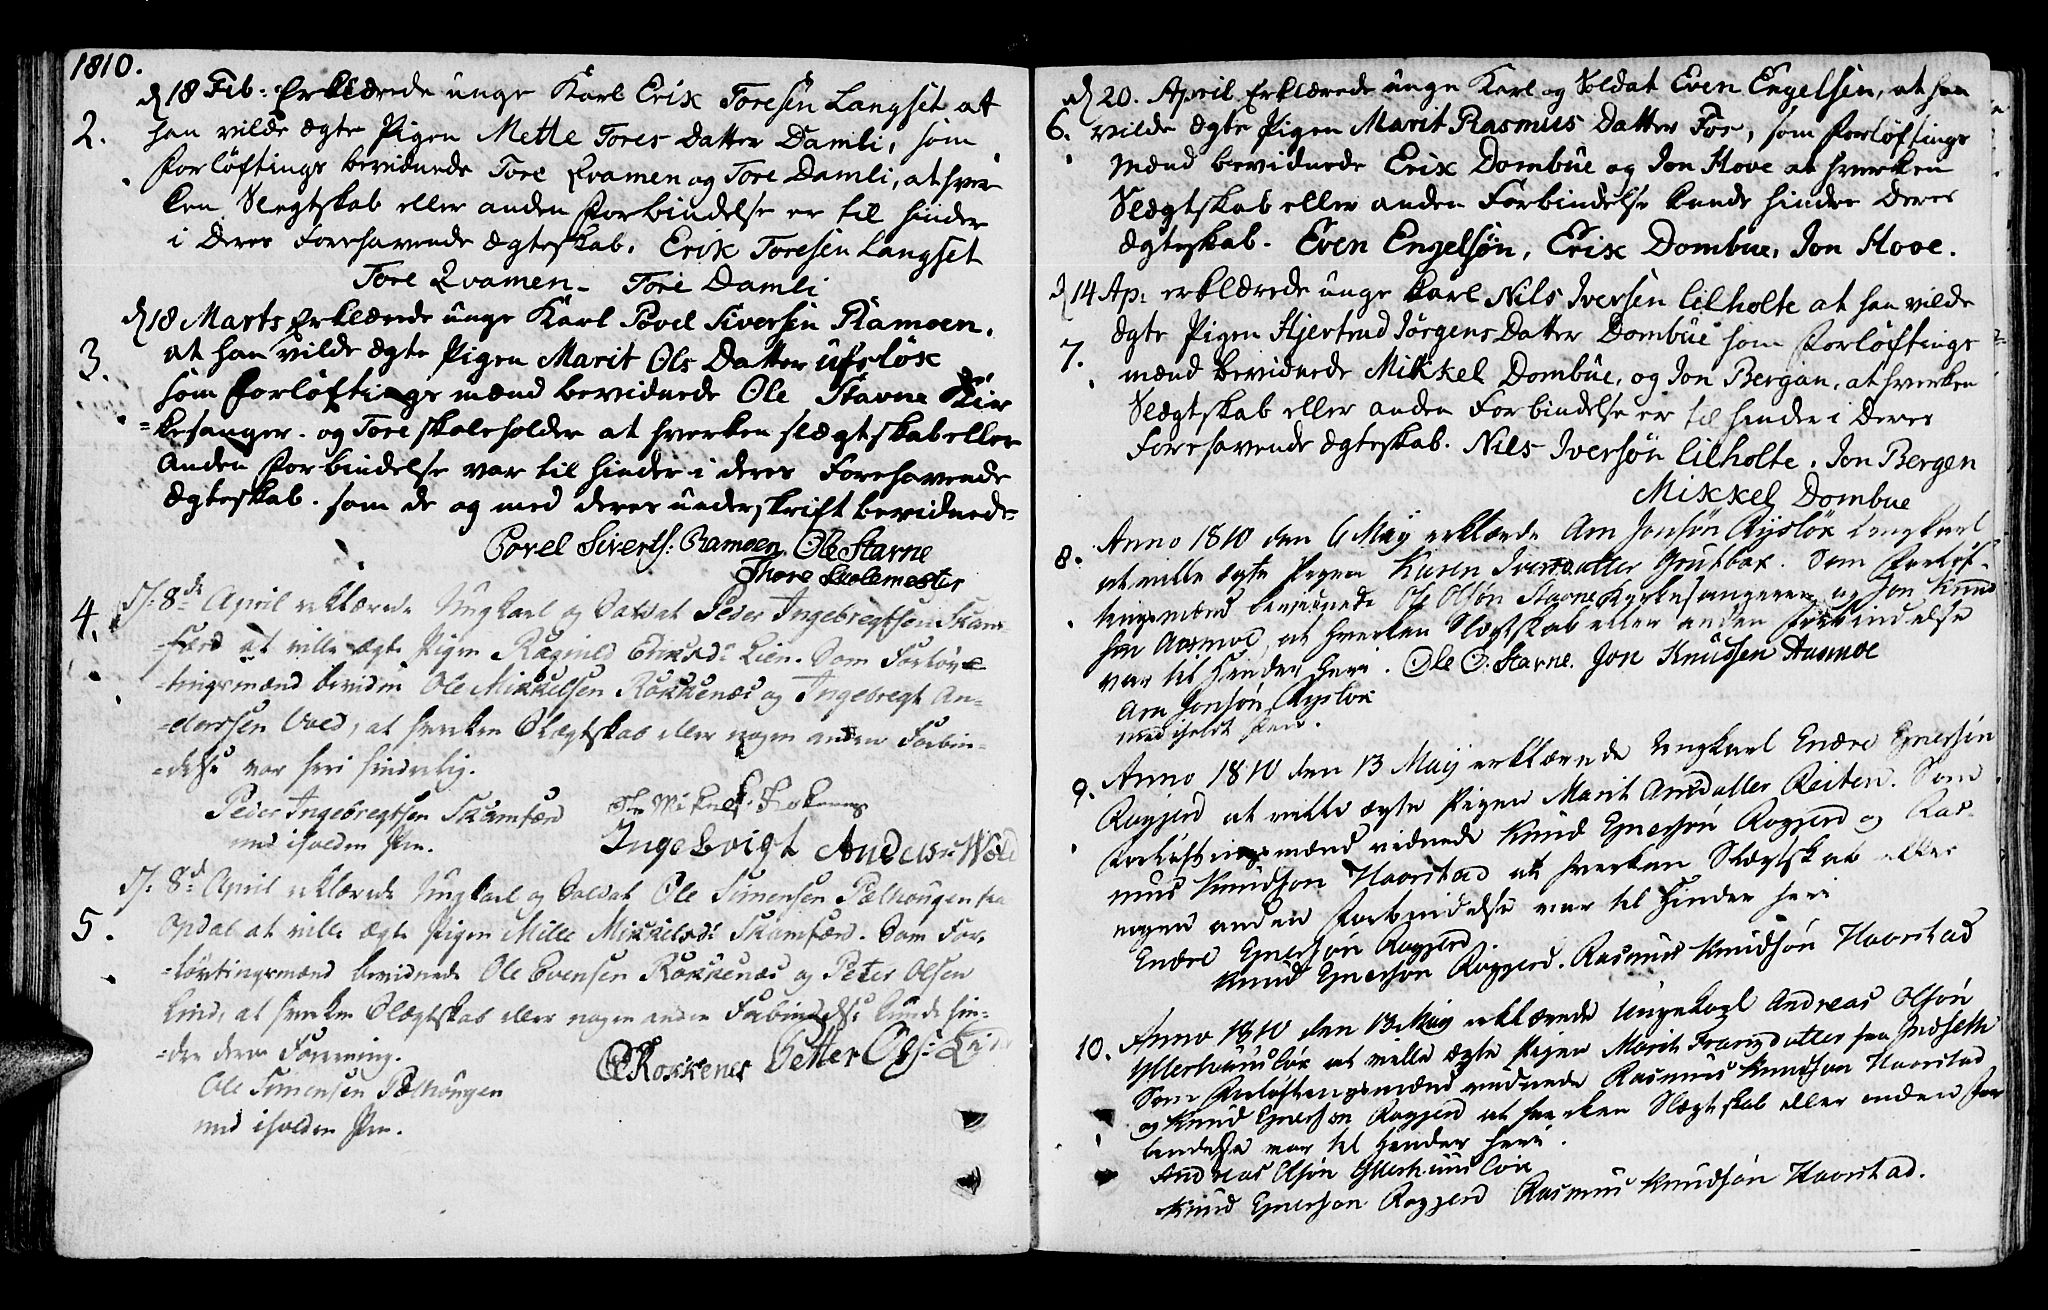 1810.
d 18 Feb: Erklærede unge Karl Erix Toresen Langset at
2. han vilde ægte Pigen Mette Tores Datter Damli, som
Forløftings bevidnede Tore Qvamen og Tore Damli, at hver-
ken Slegtskab eller anden Forbindelse er til hinder
i Deres Forehavende Ægteskab. Erix Toresen Langset
Tore Qvamen - Tore Damli
d 18 Marts Erklærede unge Karl Povel Siversen Ramoen,
3. at han vilde ægte Pigen Marit Ols Datter
som Forløftings mænd bevidnede Ole Stavne Kir-
=kesanger. og Tore skoleholder at hverken slægtskab eller
anden Forbindelse var til hinder i deres Forehavende
Ægteskab. som de og med deres underskrift bevidnede=
Povel Siverts: Ramoen, Ole Stavne
Thore Skolemester
4. D: 8de April erklærede Ungkarl og Soldat Peder Ingebregtsen Skam-
=færd at ville ægte Pigen Ragnild Eriksd: Lien. Som Forløv-
=tingsmænd bevidn Ole Mikkelsen Rokkenæs og Ingebregt An-
=derssen Vold, at hverken Slægtskab eller nogen anden Forbin-
=delse var heri hinderlig.
Peder Ingebregtsen Skamfærd
med iholden Pen.
Ingebrigt Anders: Wold
D: 8d April erklærede Ungkarl og Soldat Ole Simensen Pælhougen fra
5. Opdal at ville ægte Pigen Mille Mikkelsd: Skamfærd. Som For-
=løvtingsmænd bevidnede Ole Evensen Rokkenæs og Peter Olsen
Lind, at hverken Slægtskab eller nogen anden Forbindelse kunde hin-
=dre deres Forening.
Ole Simensen Pælhougen
med iholden Pen.
Rokkenes Petter Ols:
d 20. April Erklærede unge Karl og Soldat Even Engelsen, at han
6. vilde ægte Pigen Marit Rasmus Datter For, som Forløftings
mænd bevidnede Erix Dombue og Jon Hove at hverken
Slægtskab eller anden Forbindelse kunde hindre Deres
Ægteskab. Even Engelsøn, Erix Dombue, Jon Hove.
d 14 Ap: erklærede unge Karl Nils Iversen Lilholte at han vilde
7. ægte Pigen Hjertrud Jørgens Datter Dombue som Forløftings
mænd bevidnede Mikkel Dombue, og Jon Bergan, at hverken
Slægtskab eller anden Forbindelse er til hinder i Deres
Forehavende Ægteskab. Nils Iversøn Lilholte, Jon Bergen
Mikkel Dombue
8. Anno 1810 den 6 May erklærede Arn Jonsøn Rysløx Ungkarl
at ville ægte Pigen Karen Iversdatter Grutbax. Som Forløf-
tingsmænd bevidnede Ole Olsøn Stavne Kirkesangeren og Jon Knud
søn Aasmoe, at hverken Slægtskab eller anden Forbindelse
var til Hinder heri. Ole O. Stavne. Jon Knudsen Aasmoe
Arn Jonsøn Rysløx
med iholdt Pen.
9. Anno 1810 den 13 Maij erklærede Ungkarl Endre Ejnersøn
Rogjerd at ville ægte Pigen Marit Arnsdatter Reiten. Som
Forløftningsmænd vidnede Knud Ejnersøn Rogjerd og Ras-
mus Knudsøn Haarstad at hverken Slægtskab eller
nogen anden Forbindelse var til Hinder heri
Endre Ejnersøn Rogjerd.
Knud Ejnersøn Rogjerd. Rasmus Knudsøn Haarstad
10. Anno 1810 den 13 May erklærede Ungekarl Andreas Olsøn
Ytterhuusløx at ville ægte Pigen Marit Frantzdatter fra Indseth
Som Forløftningsmænd vidnede Rasmus Knudsøn Haarstad
og Knud Ejnersøn Rogjerd at hverken Slægtskab eller anden For
bindelse var til Hinder heri.
Andreas Olsøn Ytterhuusløx
Knud Ejnersøn Rogjerd Rasmus Knudsøn Haarstad.